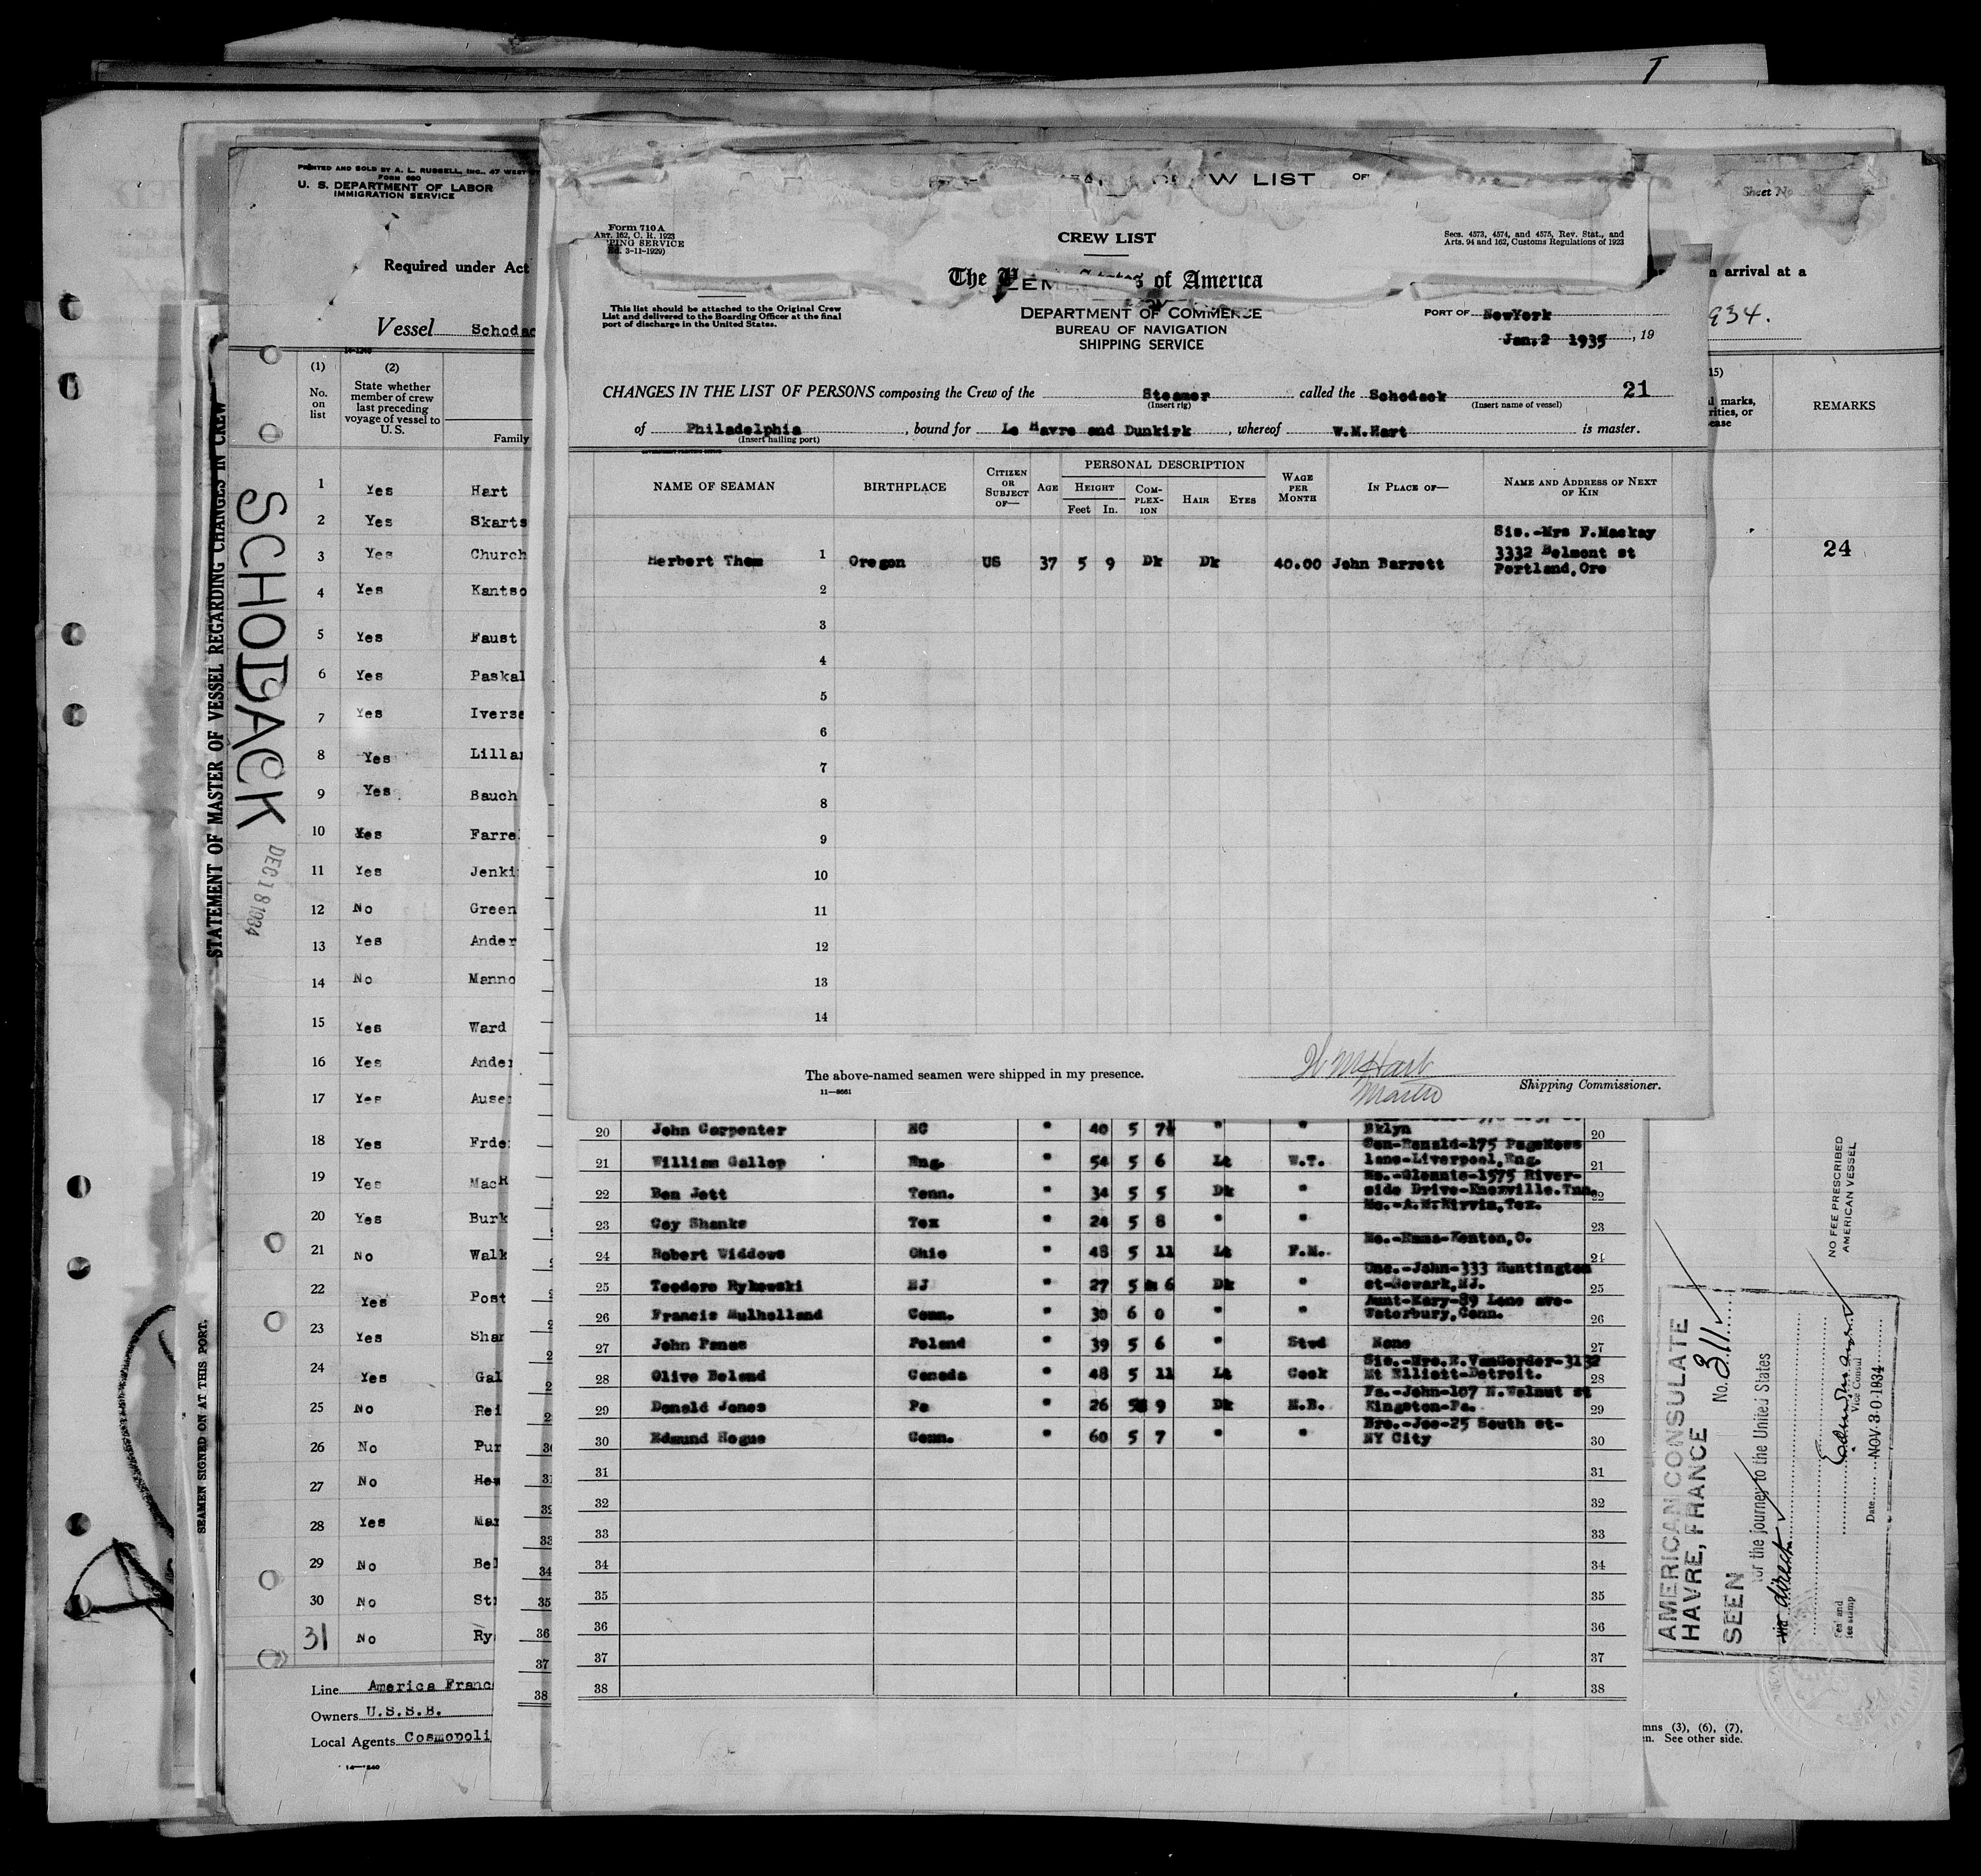 T
PRINTED AND SOLD BY A. L. RUSSELL, INC., 47 WEST
FORM 680
U. S. DEPARTMENT OF LABOR
IMMIGRATION SERVICE
Required under Act
Vessel Schodac
(1) (2)
No. on list
State whether member of crew last preceding voyage of vessel to U.S.
Family
1 Yes Hart
2 Yes Skarts
3 Yes Church
4 Yes Kantso
5 Yes Faust
6 Yes Paskal
7 Yes Iverse
8 Yes Lilla
9 Yes Bauch
10 Yes Farre
11 Yes Jenki
12 No Green
13 Yes Ander
14 No Manno
15 Yes Ward
16 Yes Ander
17 Yes Ause
18 Yes Frde
19 Yes MacR
20 Yes Burk
21 No Walk
22 Yes Post
23 Yes Shar
24 Yes Gal
25 No Rei
26 No Pur
27 No Hew
28 Yes Mar
29 No Bel
30 No St
31 No Ry
Line America Franc
Owners U.S.S.B.
Local Agents Cosmopoli
STATEMENT OF MASTER OF VESSEL REGARDING CHANGES IN CREW
SEAMEN SIGNED ON AT THIS PORT.
SCHODACK
DEC 18 1934
W LIST OF
Form 710A
ART. 162, C. R. 1923
PING SERVICE
Ed. 3-11-1929)
CREW LIST
Secs. 4573, 4574, and 4575, Rev. Stat., and
Arts. 94 and 162, Customs Regulations of 1923
The of America
This list should be attached to the Original Crew
List and delivered to the Boarding Officer at the final
port of discharge in the United States.
DEPARTMENT OF COMMERCE
BUREAU OF NAVIGATION
SHIPPING SERVICE
PORT OF NewYork
Jan.2 1935, 19
CHANGES IN THE LIST OF PERSONS composing the Crew of the Steamer called the Schodack 21
(Insert rig) (Insert name of vessel)
of Philadelphia, bound for Le Havre and Dunkirk, whereof W.M.Hart is master.
(Insert hailing port)
NAME OF SEAMAN BIRTHPLACE CITIZEN OR SUBJECT OF— AGE PERSONAL DESCRIPTION HEIGHT Feet In. COMPLEXION HAIR EYES WAGE PER MONTH IN PLACE OF— NAME AND ADDRESS OF NEXT OF KIN
Sis.-Mrs F.Mackay
3332 Belmont st
Portland,Ore
Herbert Thom 1 Oregon US 37 5 9 Dk Dk 40.00 John Barrett
2
3
4
5
6
7
8
9
10
11
12
13
14
The above-named seamen were shipped in my presence.
11—8661
W M Hart
Master
Shipping Commissioner.
20 John Carpenter NC " 40 5 7½ " " Bklyn 20
21 William Gallop Eng. " 54 5 6 Lt W.T. Son-Ronald-175 lane-Liverpool,Eng. 21
22 Ben Jett Tenn. " 34 5 5 Dk " Mo.-Glennie-1575 River-side Drive-Knoxville.Tnn. 22
23 Coy Shanks Tex " 24 5 8 " " Mo.-A.M.Kirvin,Tex. 23
24 Robert Widdows Ohio " 48 5 11 Lt F.M. Mo.-Emma-Kenton,O. 24
25 Teodore Rykowski NJ " 27 5 6 Dk " Unc.-John-333 Huntington st-Newark,NJ. 25
26 Francis Mulholland Conn. 30 6 0 " " Aunt-Mary-89 Lone ave-Waterbury,Conn. 26
27 John Panas Poland 39 5 6 " Stwd None 27
28 Olive Beland Canada " 48 5 11 Lt Cook Sis.-Mrs.R.VanGorder-3132 Mt Elliott-Detroit. 28
29 Donald Jones Pa " 26 5 9 Dk M.B. Fa.-John-107 N.Walnut st Kingston-Pa. 29
30 Edmund Hogue Conn. " 60 5 7 " " Bro.-Joe-25 South st-NY City 30
31 31
32 32
33 33
34 34
35 35
36 36
37 37
38 38
Sheet No
n arrival at a
934.
15)
marks,
rities, or
ease
REMARKS
24
NO FEE PRESCRIBED
AMERICAN VESSEL
AMERICAN CONSULATE
HAVRE, FRANCE No. 311
SEEN
for the journey to the United States
via direct
Vice Consul
Date NOV 30 1934
Seal and
fee stamp
mns (3), (6), (7),
en. See other side.